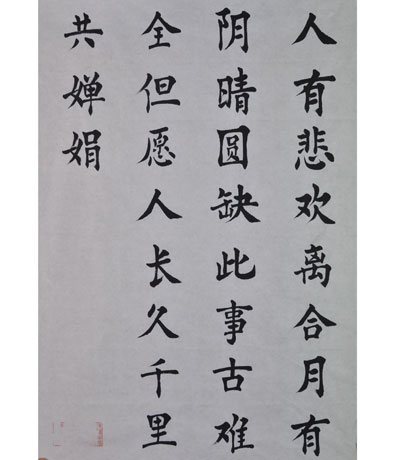 人有悲欢离合月有
阴晴圆缺此事古难
全但愿人长久千里
共婵娟